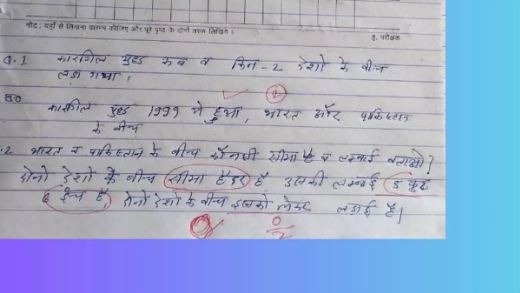 नोट : यहाँ से लिखना प्रारम्भ कीजिए और पूरे पृष्ठ के दोनों तरफ लिखिये ।
ह. परीक्षक
Q.1 कारगिल युद्ध कब व किन-2 देशो के बीच
लड़ा गया ।
उ0 कारगिल युद्ध 1999 मे हुआ, भारत और पाकिस्तान
के बीच
.2 भारत व पाकिस्तान के बीच कौनसी सीमा है व लम्बाई बताओ ?
दोनो देशो के बीच सीमा हैदर है उसकी लम्बाई 5 फुट
6 इंच है, दोनो देशो के बीच इसको लेकर लड़ाई है।
0
2